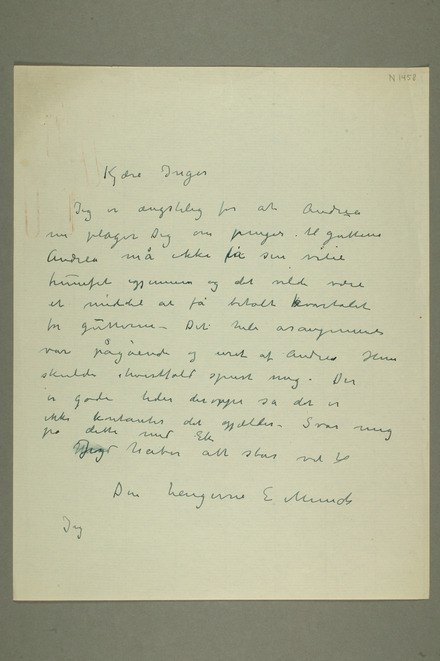 N 1458
Kjære Inger
Jeg er ængstelig for at Andrea
nu plager Dig om penger. til guttene
Andrea må ikke få sin vilie
igjennem og det vilde være
et middel at få betalt kvartalet
for gutterne – Det hele arangementet
var pågående og uret af Andrea Hun
skulde ihvertfald spurt mig – Der
er gode tider deroppe så det er
ikke det gjælder – Svar mig
på dette med
håber alt står vel til
Din hengivne E Munch
Jeg